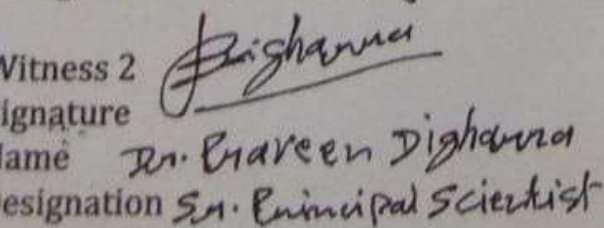 Witness 2
Signature
Name Dr. Praveen Digharra
Designation Sr. Principal Scientist